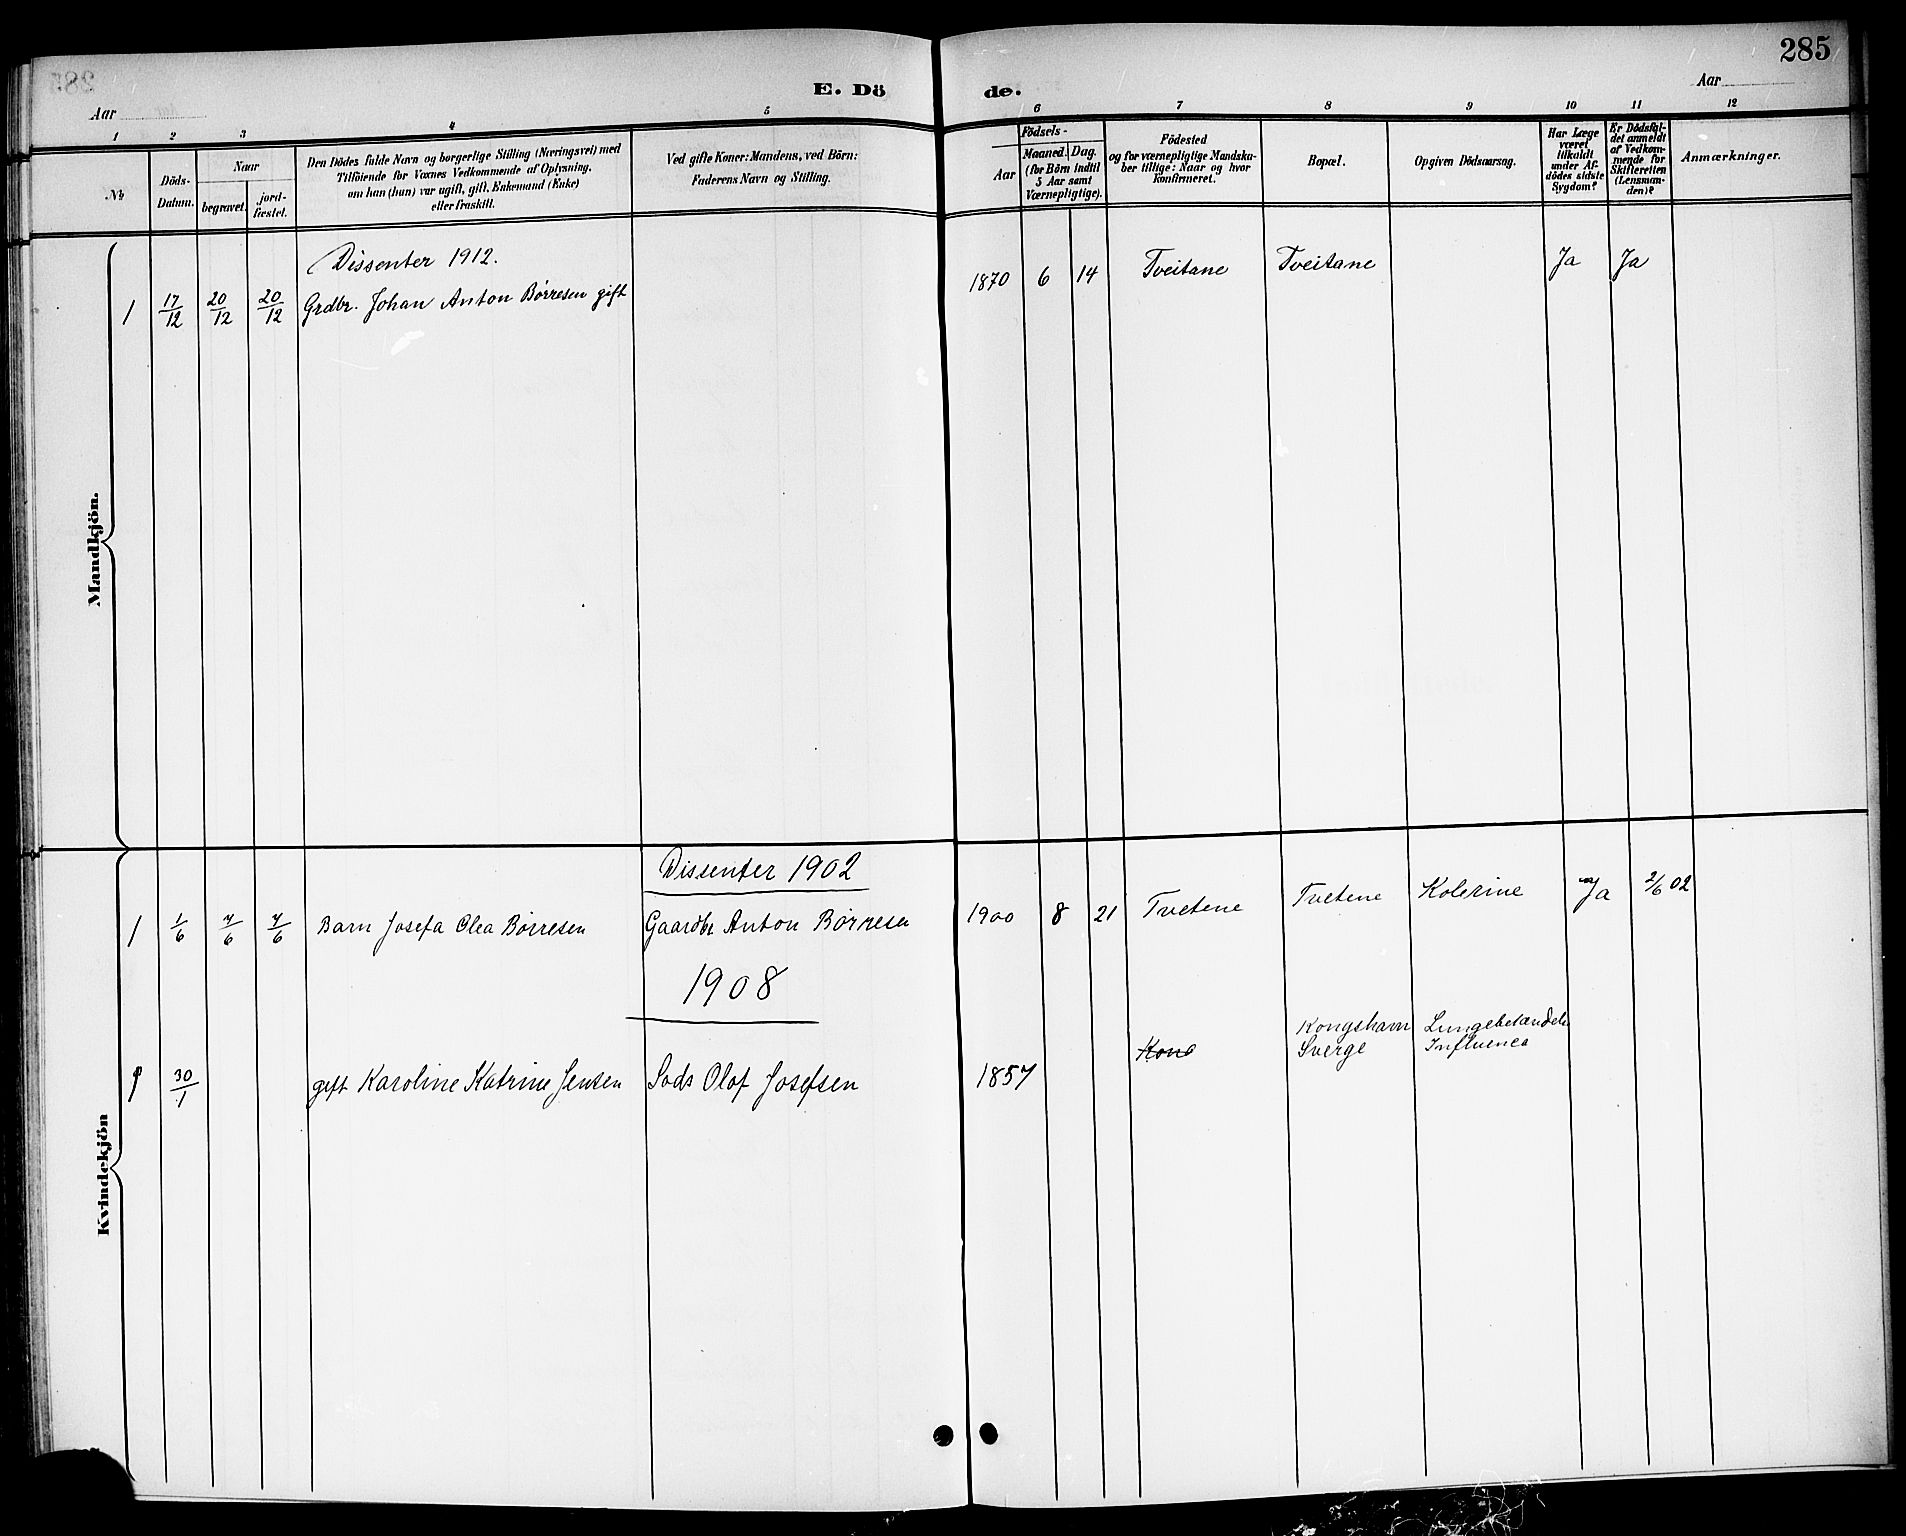 285
E. Dö de.
Aar
Aar
1 2 3 4 5 6 7 8 9 10 11 12
№
Döds-
Datum.
Naar
begravet.
jord-
fæstet.
Den Dödes fulde Navn og borgerlige Stilling (Næringsvei) med
Tilföiende for Voxnes Vedkommende af Oplysning,
om han (hun) var ugift, gift, Enkemand (Enke)
eller fraskilt.
Ved gifte Koner: Mandens, ved Börn:
Faderens Navn og Stilling.
Födsels-
Aar
Maaned. Dag.
(for Börn indtil
5 Aar samt
Værnepligtige).
Födested
og for værnepligtige Mandska-
ber tillige: Naar og hvor
konfirmeret.
Bopæl.
Opgiven Dödsaarsag.
Har Læge
været
tilkaldt
under Af-
dödes sidste
Sygdom?
Er Dödsfal-
det anmeldt
af Vedkom-
mende for
Skifteretten
(Lensman-
den)?
Anmærkninger.
Mandkjön.
Dissenter 1912.
1 17/12 20/12 20/12 Grdbr. Johan Anton Börresen gift 1870 6 14 Tveitane Tveitane Ja Ja
Kvindekjön
Dissenter 1902
1 1/6 7/6 7/6 Barn Josefa Olea Börresen Gaardbr Anton Börresen 1900 8 21 Tvetene Tvetene Kolerine Ja 2/6 02
1908
Kongshavn Lungebetændels
Sverge Influenca
1 30/1 gift Karoline Katrine Jensen Sads Olof Josefsen 1857 Kons